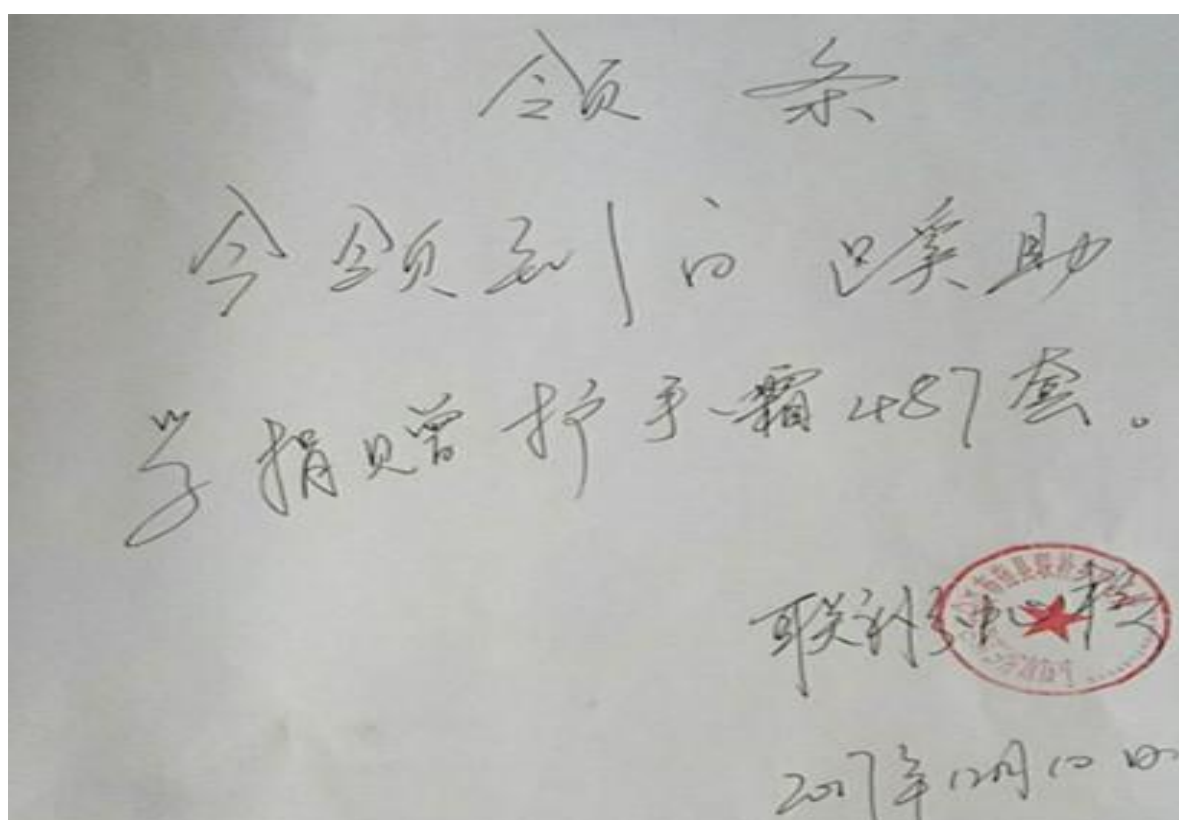 领 条
今领到言蹊助
学捐赠护手霜487套。
联补乡中心校
县联补乡
2017年12月10日